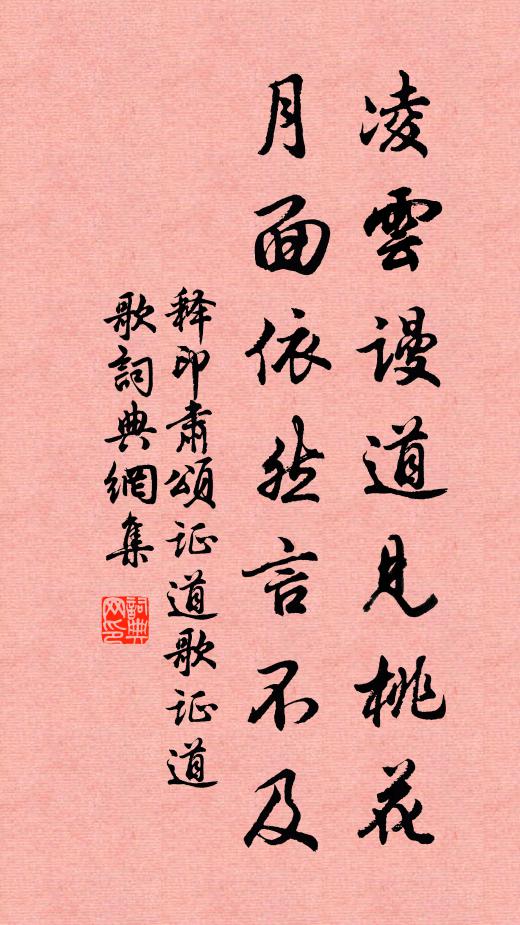 凌雲謾道見桃花
月面依然言不及
释印肃颂证道歌证道
歌詞典網集
詞典
网印